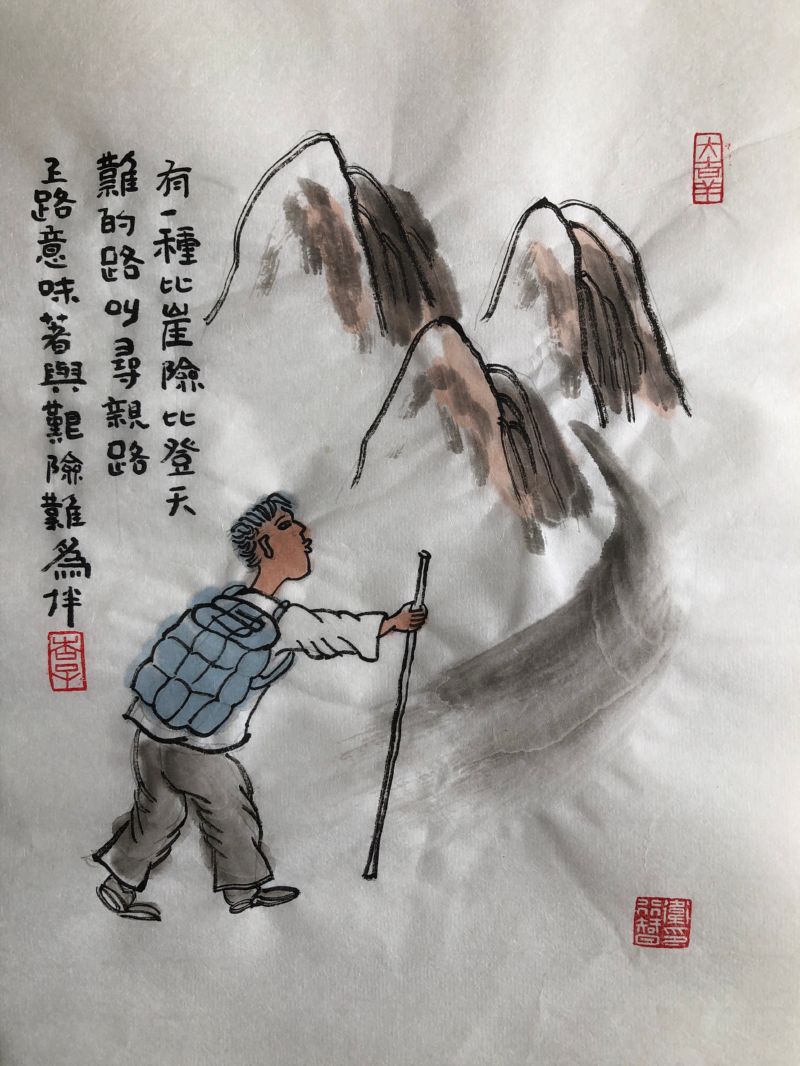 有一種比崖險比登天
難的路叫尋親路
上路意味著與艱險難為伴
大吉羊